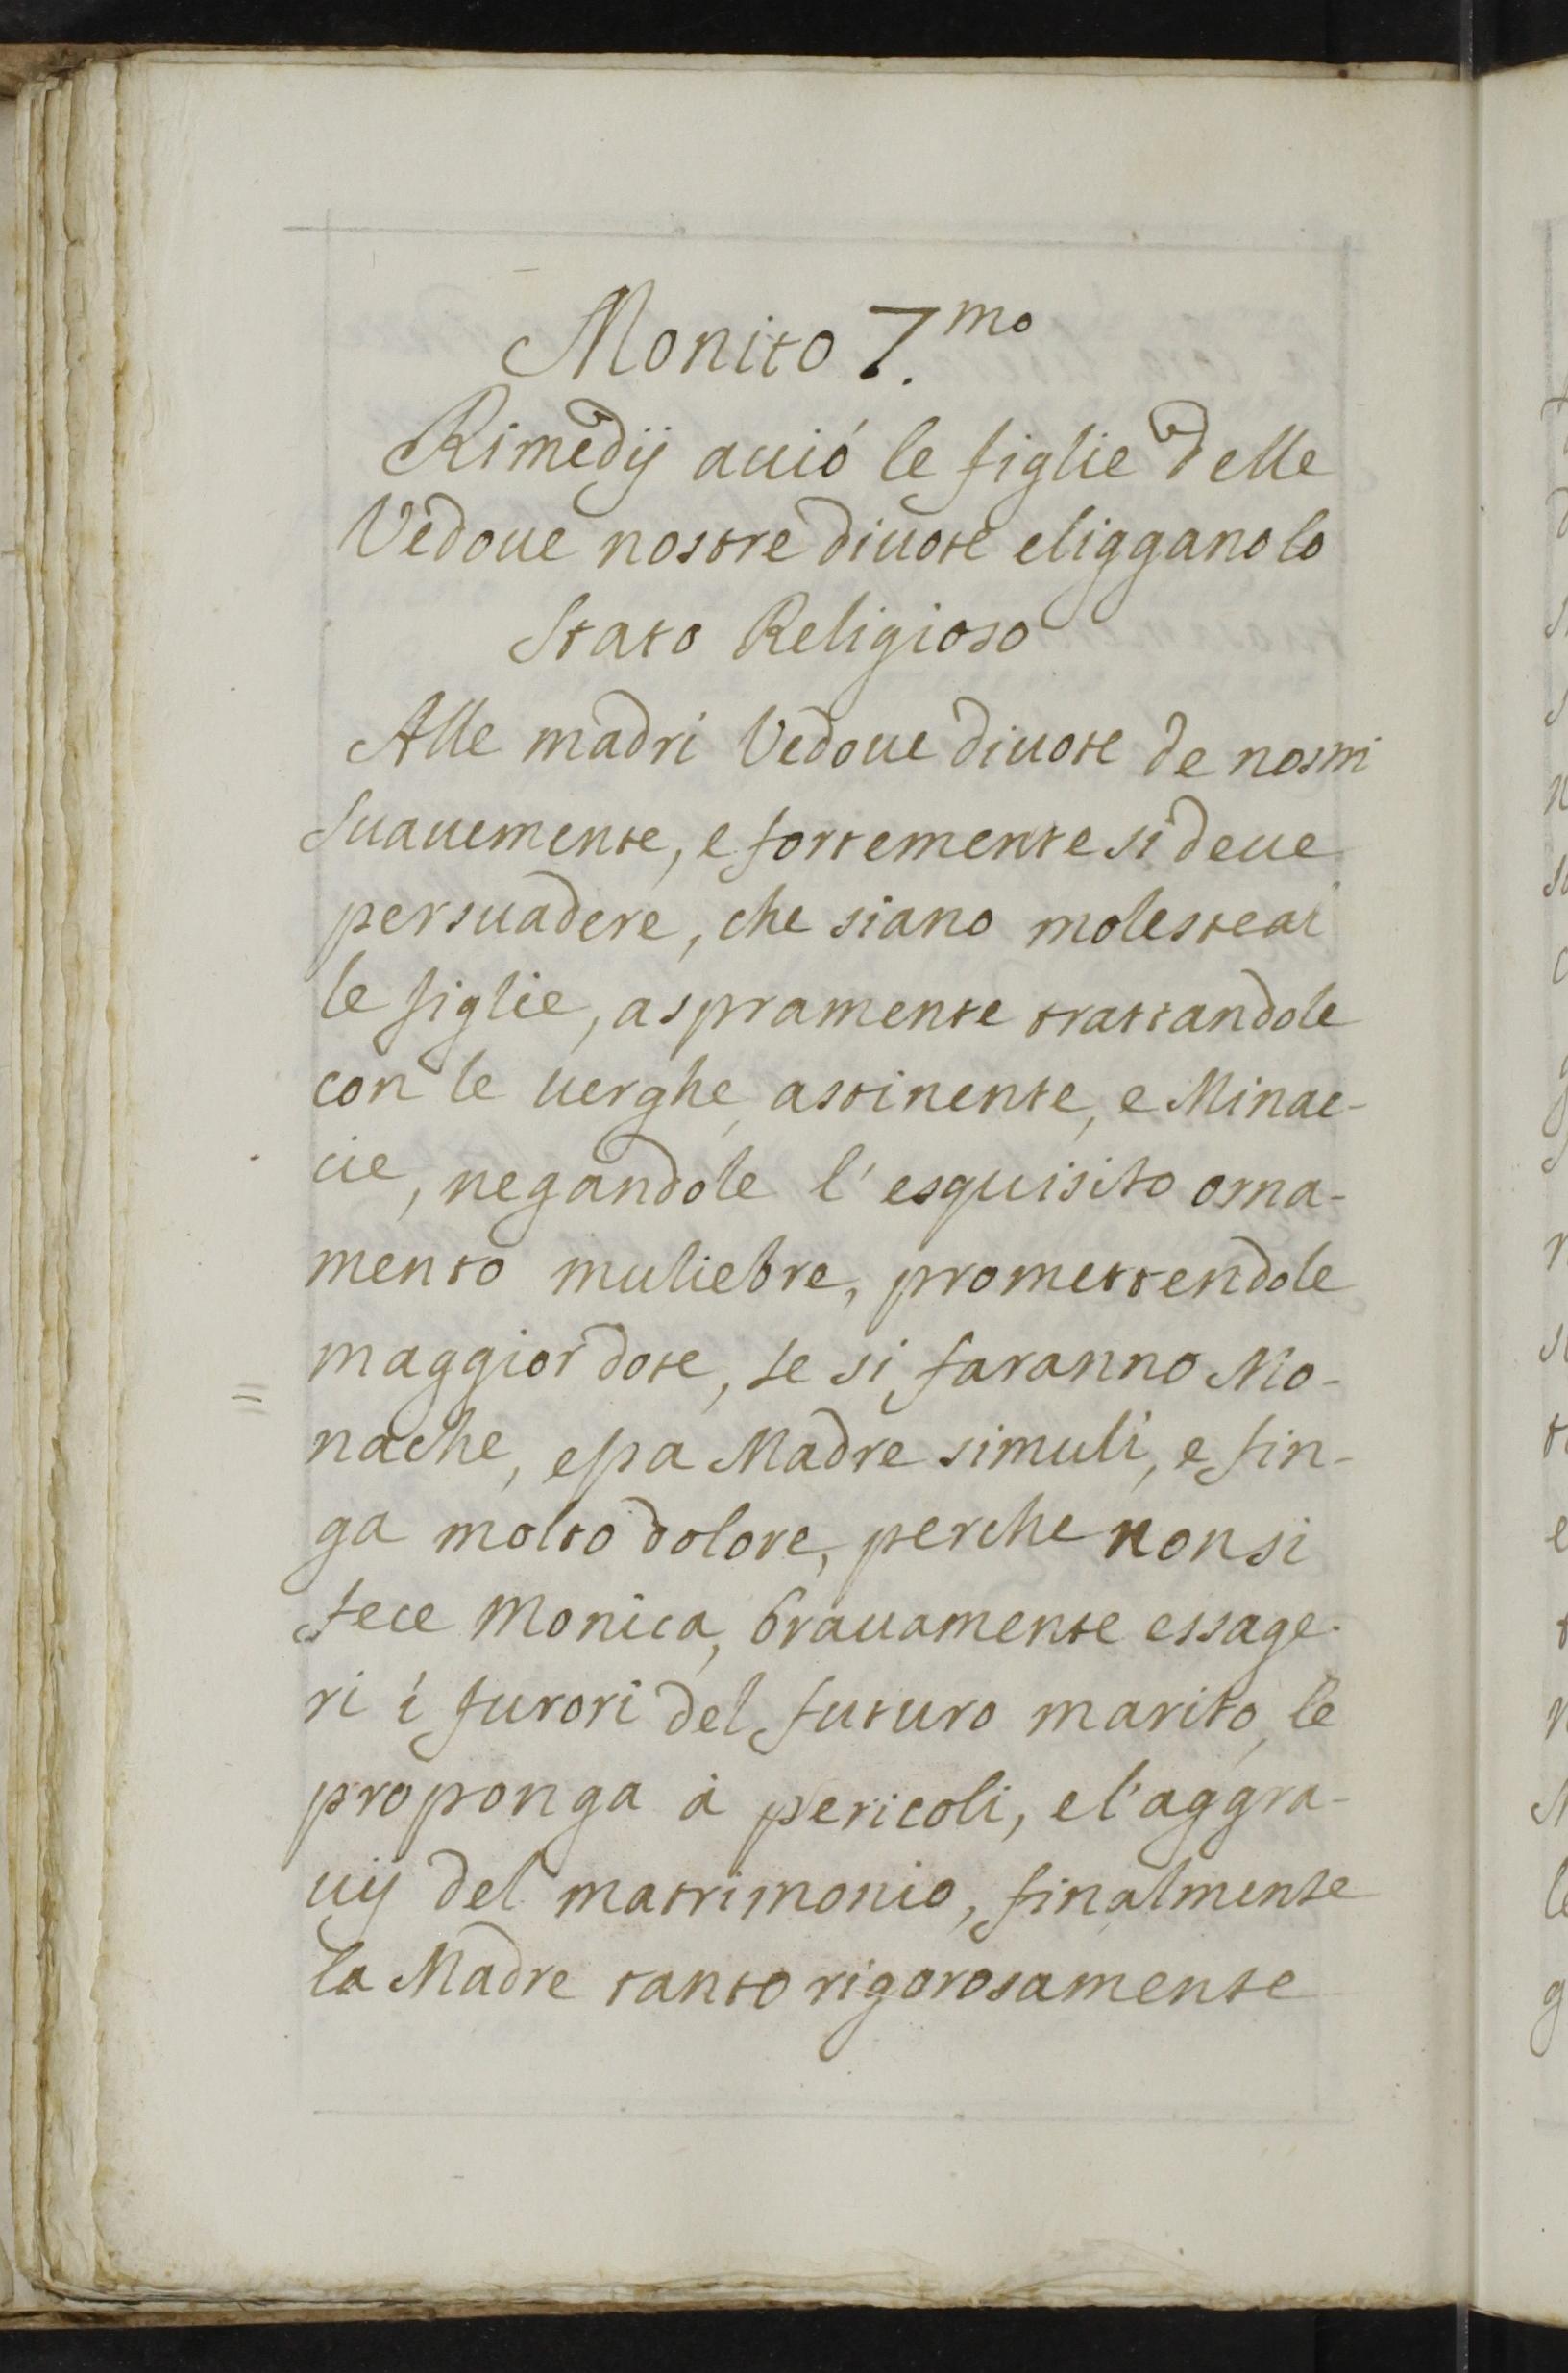 Monito 7.mo
Rimedij aciò le figlie delle
Vedoue nostre diuote eligganolo
Stato Religioso
Alle madri Vedoue diuote de nostri
suauemente, e fortemente si deue
persuadere, che siano moleste ai
le figlie, aspramente trattandole
con le uerghe, astinente, e Minac-
cie, negandole l'esquisito orna-
mento muliebre, promettendole
maggior dote, se si faranno Mo-
nache, essa Madre simuli, e fin-
ga molto dolore, perche non si
fece Monica, brauamente essage-
ri i furori del futuro marito, le
proponga à pericoli, e l'aggra-
uij del matrimonio, finalmente
la Madre tanto rigorosamente